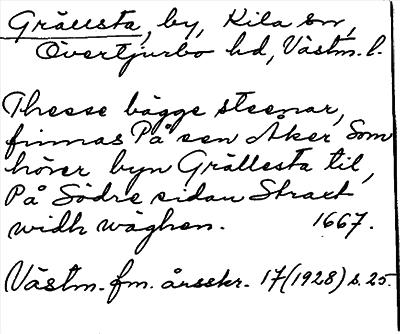 Grällesta, by, Kila sn,
Övertjurbo hd, Västm. l.
Thesse bägge steenar,
finnas På een Åker Som
hörer byn Grällesta til,
På Södre sidan Straxt
widh wäghen. 1667.
Västm. fm. årsskr. 17 (1928) s. 25.